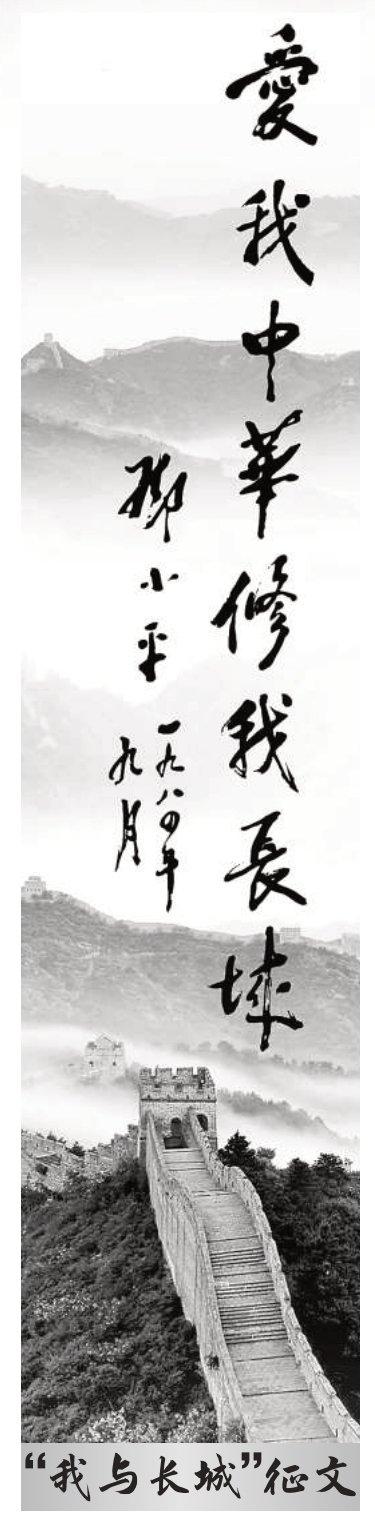 愛我中華修我長城
鄧小平
一九八四年
九月
“我与长城”征文